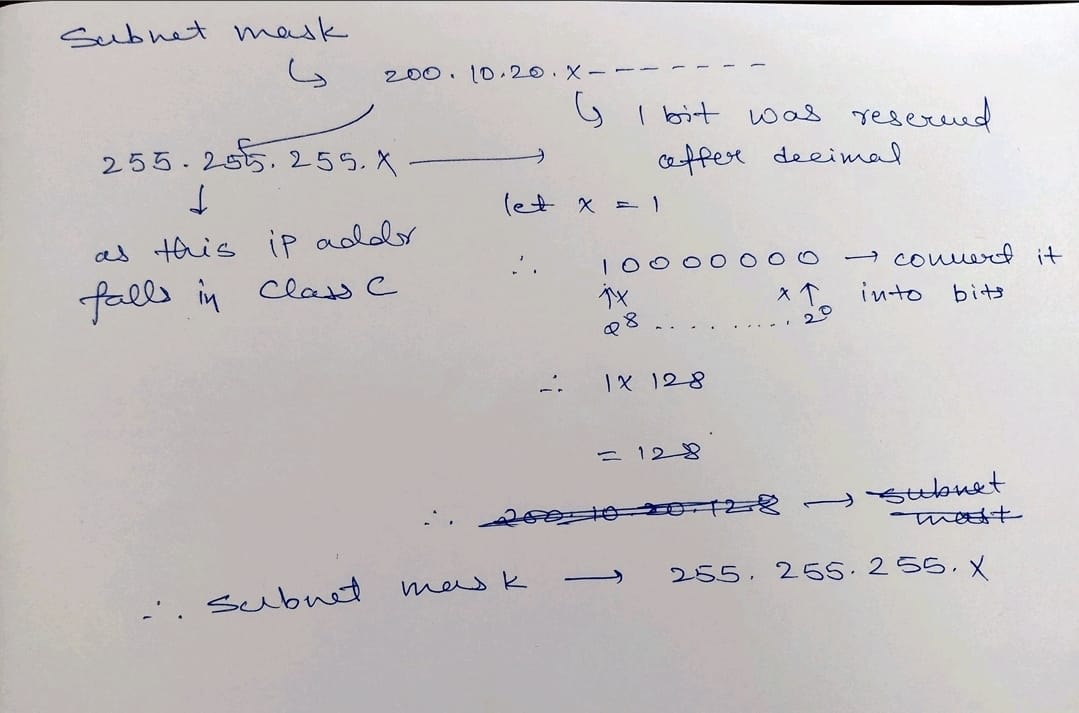 Subnet mask
↳ 200.10.20.X--------
↳ 1 bit was reserved
after decimal
255.255.255.X →
↓
as this ip addr
falls in Class C
let x = 1
∴ 10000000 → convert it
↑x x↑ into bits
2⁸ .......... 2⁰
∴ 1 x 128
= 128
∴ 200.10.20.128 → subnet
mast
∴ subnet mask → 255.255.255.X